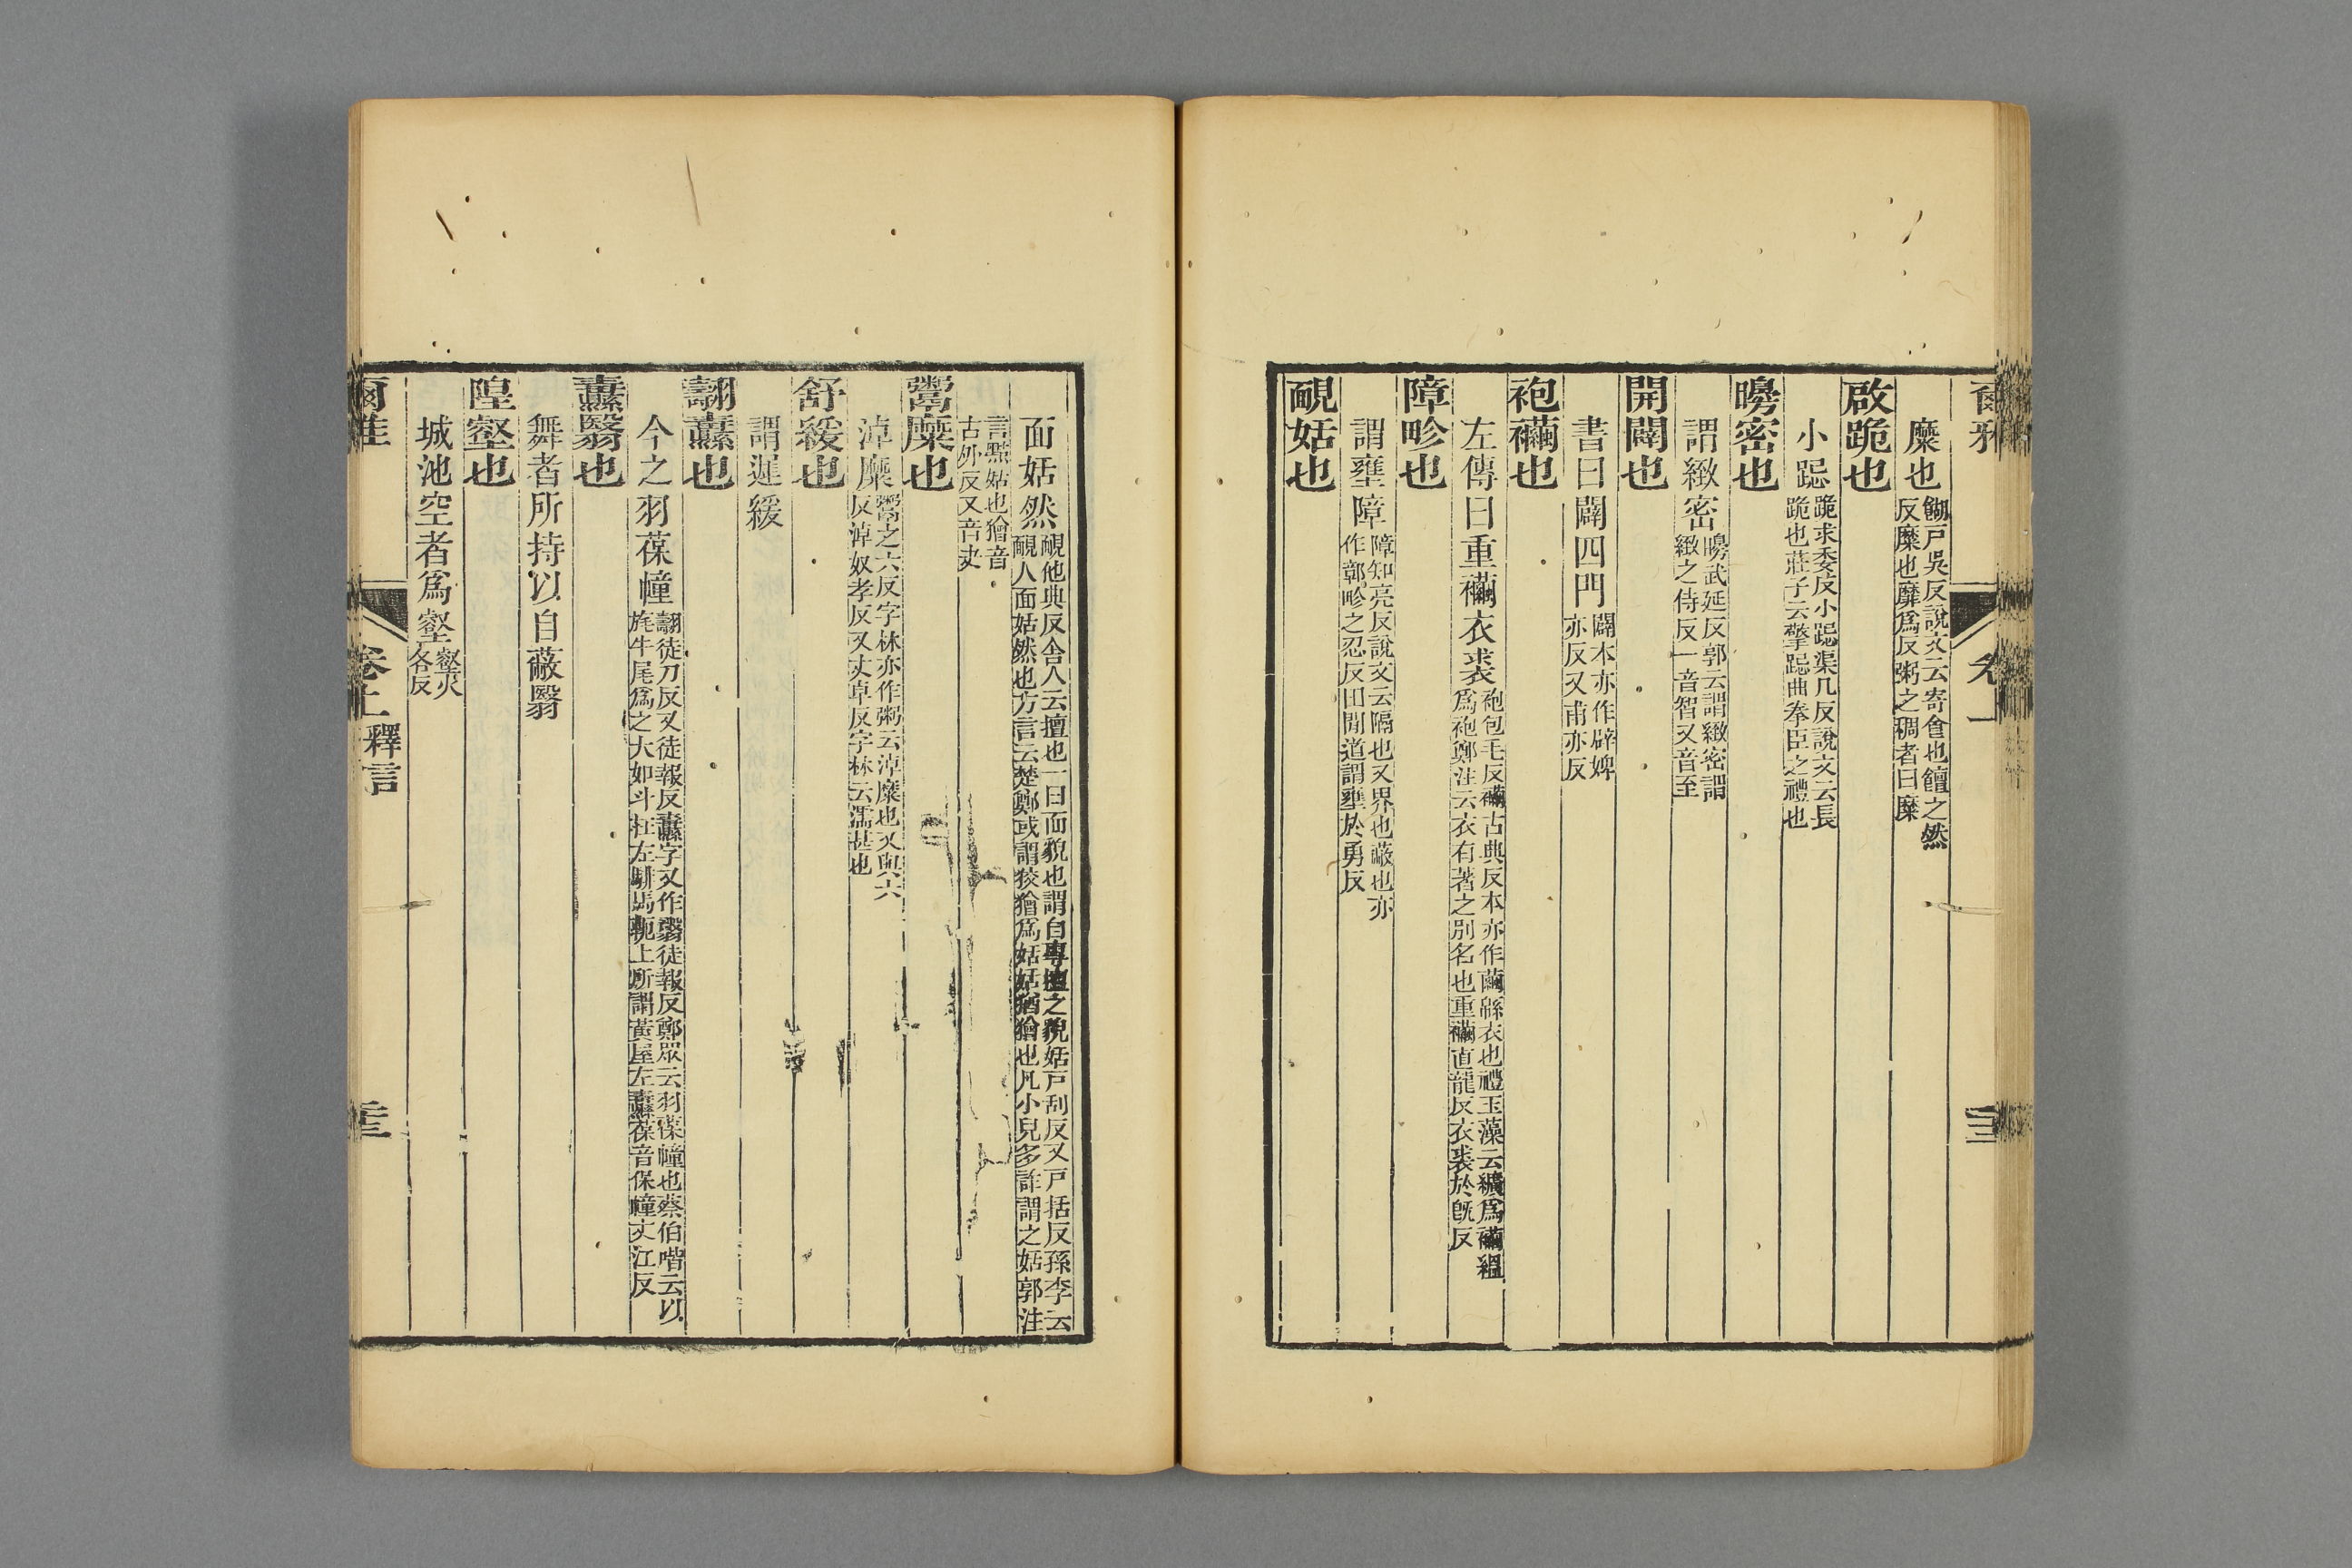 糜也餬戸吳反說文云寄食也饘之然
反糜也靡爲反粥之稠者曰糜
啟跪也
小跽跪求委反小跽渠几反說文云長
跪也莊子云擎跽曲拳臣之禮也
矏密也
謂緻密矏武延反郭云謂緻密謂
緻之侍反一音智又音至
開闢也
書曰闢四門闢本亦作辟婢
亦反又甫亦反
袍襺也
左傳曰重襺衣裘袍包毛反襺古典反本亦作繭緜衣也禮玉藻云纊爲襺縕
爲袍鄭注云衣有著之別名也重襺直龍反衣裘於旣反
障畛也
謂壅障障知亮反說文云隔也又界也蔽也亦
作鄣畛之忍反田閒道謂壅於勇反
靦姡也
面姡然靦他典反舍人云擅也一曰面貌也謂自專擅之貌姡戸刮反又戸括反孫李云
靦人面姡然也方言云楚鄭或謂狡獪爲姡姡猶獪也凡小兒多詐謂之姡郭注
言黠姑也獪音
古外反又音史
鬻糜也
淖糜鬻之六反字林亦作粥云淖糜也又與六
反淖奴孝反又丈卓反字林云濡甚也
舒緩也
謂遲緩
翿纛也
今之羽葆幢翿徒刀反又徒報反纛字又作翿徒報反鄭眾云羽葆幢也蔡伯喈云以
旄牛尾爲之大如斗在左騑馬軛上所謂黃屋左纛葆音保幢丈江反
纛翳也
舞者所持以自蔽翳
隍壑也
城池空者爲壑壑火
各反
爾雅 卷上 釋言